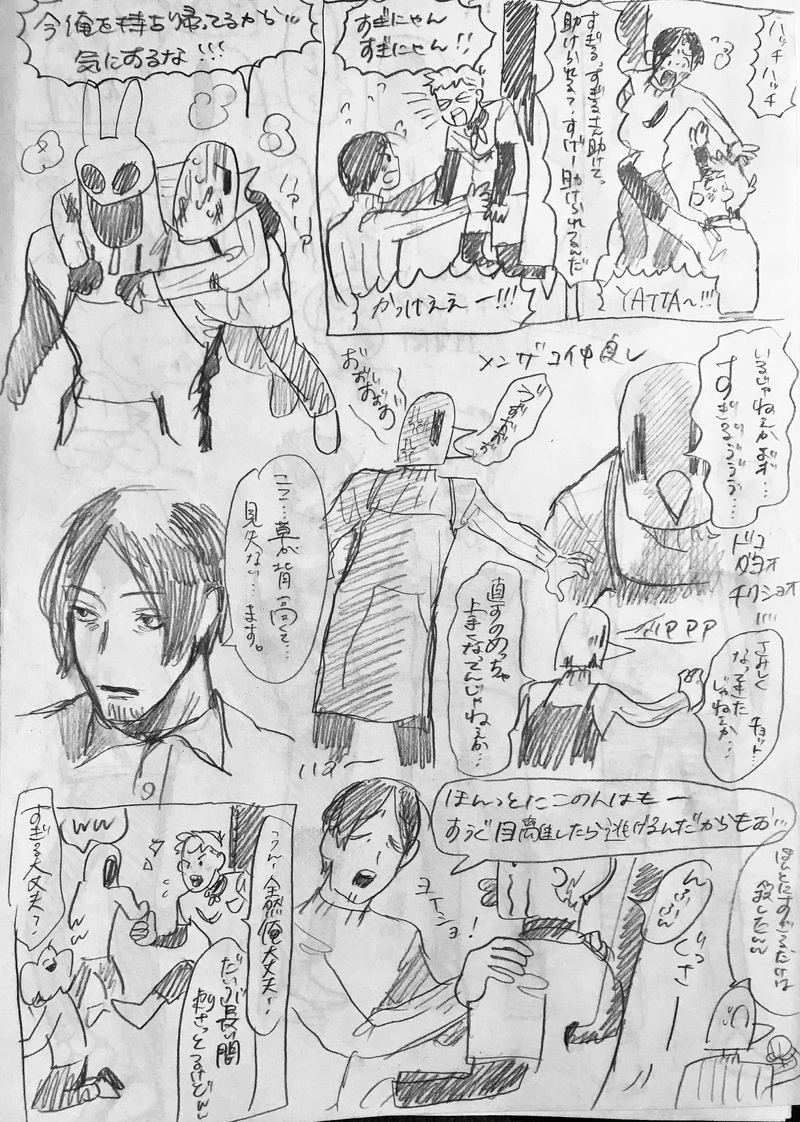 ハッチ
ハッチ
YATTA〜!!!
すぎるっすぎるさん助けてっ
助けられてるすげー助けられてるんだ
すぎにゃん
すぎにゃん!!
かっけええー!!!
今俺を持ち帰ってるから…
気にするな!!!
ハアーア
メンザコイ仲良し
いるじゃねぇかよぉ…
すぎるぅぅぅ…
ドコ
ダヨォ
チクショオ
!!!!
おおおおお
ここ…草が背高くて…
見失ない…ます。
直すのめっちゃ
上手くなってんじゃねぇか…
さみしく
なってきた
じゃねぇか…
チョット…
ほんっとにこの人はもー
すうぐ目離したら逃げるんだからもお…
ヨイショ!
んふふん
ぐっさ
ほんとにすぎるだけは
殺したいんん
うん!全然俺大丈夫!
だいぶ長い間
ww
すぎる大丈夫?